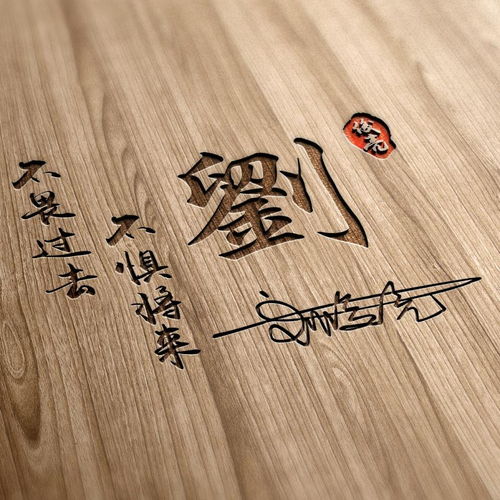 劉
不畏过去
不惧将来